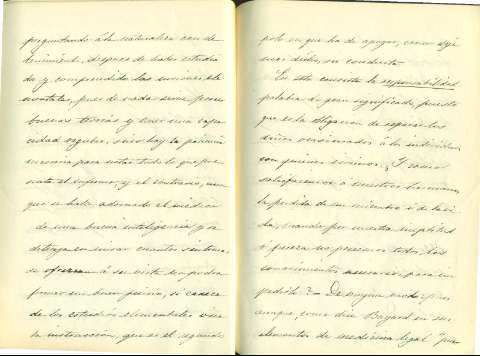 preguntando á la naturaleza con de
tenimiento, despues de haber estudia
do y comprendido las nociones ele
mentales, pues de nada sirve poseer
buenas teorias y tener una capa
cidad regular, sino hay la paciencia
necesaria para notar todo lo que pre
senta el enfermo; y el contrario, aun
que se halle adornado el médico
de una buena inteligencia y se
detenga en mirar cuantos sintomas
se ofrezcan á su vista no podra
formar un buen juicio, si carece
de los estudios elementales ó sea
la instruccion, que es el segundo
polo en que ha de apoyar, como dije
mos antes, su conducta.
En esto consiste la responsabilidad
palabra de gran significado, puesto
que es la obligacion de reparar los
daños ocasionados á los individuos
con quienes vivimos. ¿Y como
satisfaremos á nuestros hermanos
la perdida de un miembro ó de la vi
da, cuando por nuestra ineptitud
ó pereza no poseemos todos los
conocimientos necesarios para im
pedirla? — De ningun modo; y sin
embargo, como dice Bayard en sus
elementos de medicina legal "para